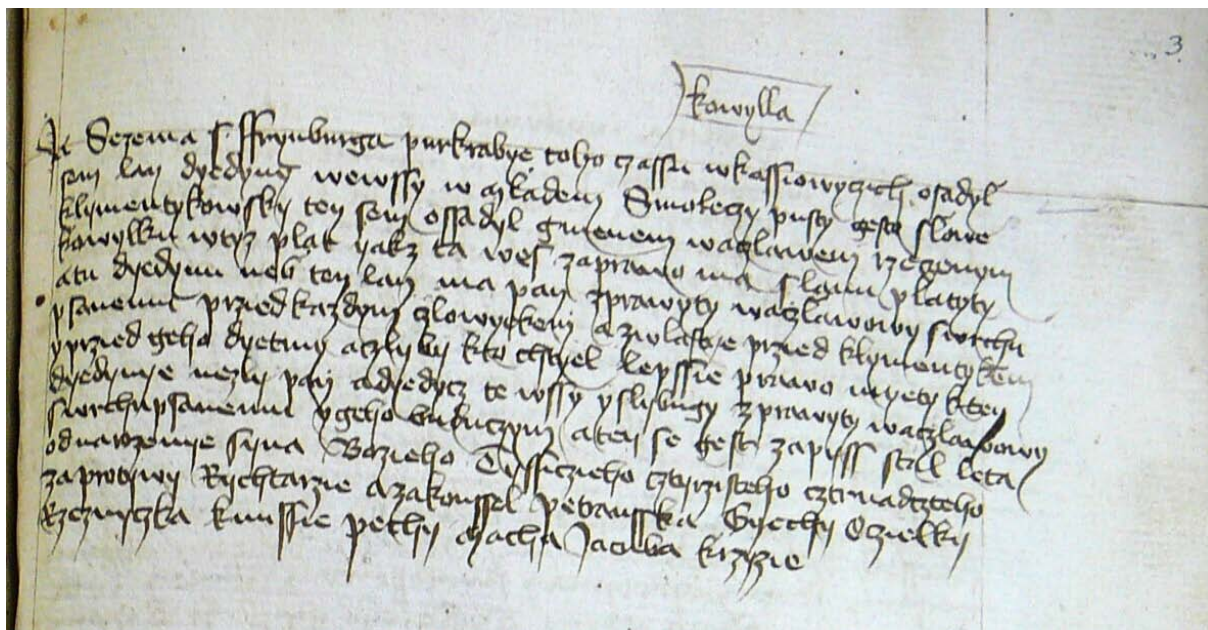 3
kowylla
Ja Sezema s ffrymburga purkrabye toho czassu wkassiowyczich osadyl
sem lan dyedyny wewssy w mladem Smolechy pusty gesto slowe
klymentykowsky ten sem ossadyl gmenem waczlawem rzeczenym
kowylku wtyz plat yakz ta wes zaprawo ma slann platyty
atu dyedynu neb ten lan ma pan zprawyty waczlawowy swrchu
psanemu przied kazdym czlowyekem a zwlastye przied klymentykem
yprzied geho dyetmy aczly by kto chtyel lepssie prawo myety kten
dyedynye nezly pan adyedycz te wssy yslybugy zprawyty waczlawowy
swrchupsanemu ygeho buduczym aten se gest zapyss stall leta
odnarozenye syna Bozieho Tyssiczieho cztyrzisteho cztrnadczteho
zaprotywy Rychtarzie azakonssel petrusska Gyechy Oczielky
Rzeznyczka kunssie pechy macha Jacuba krzizie